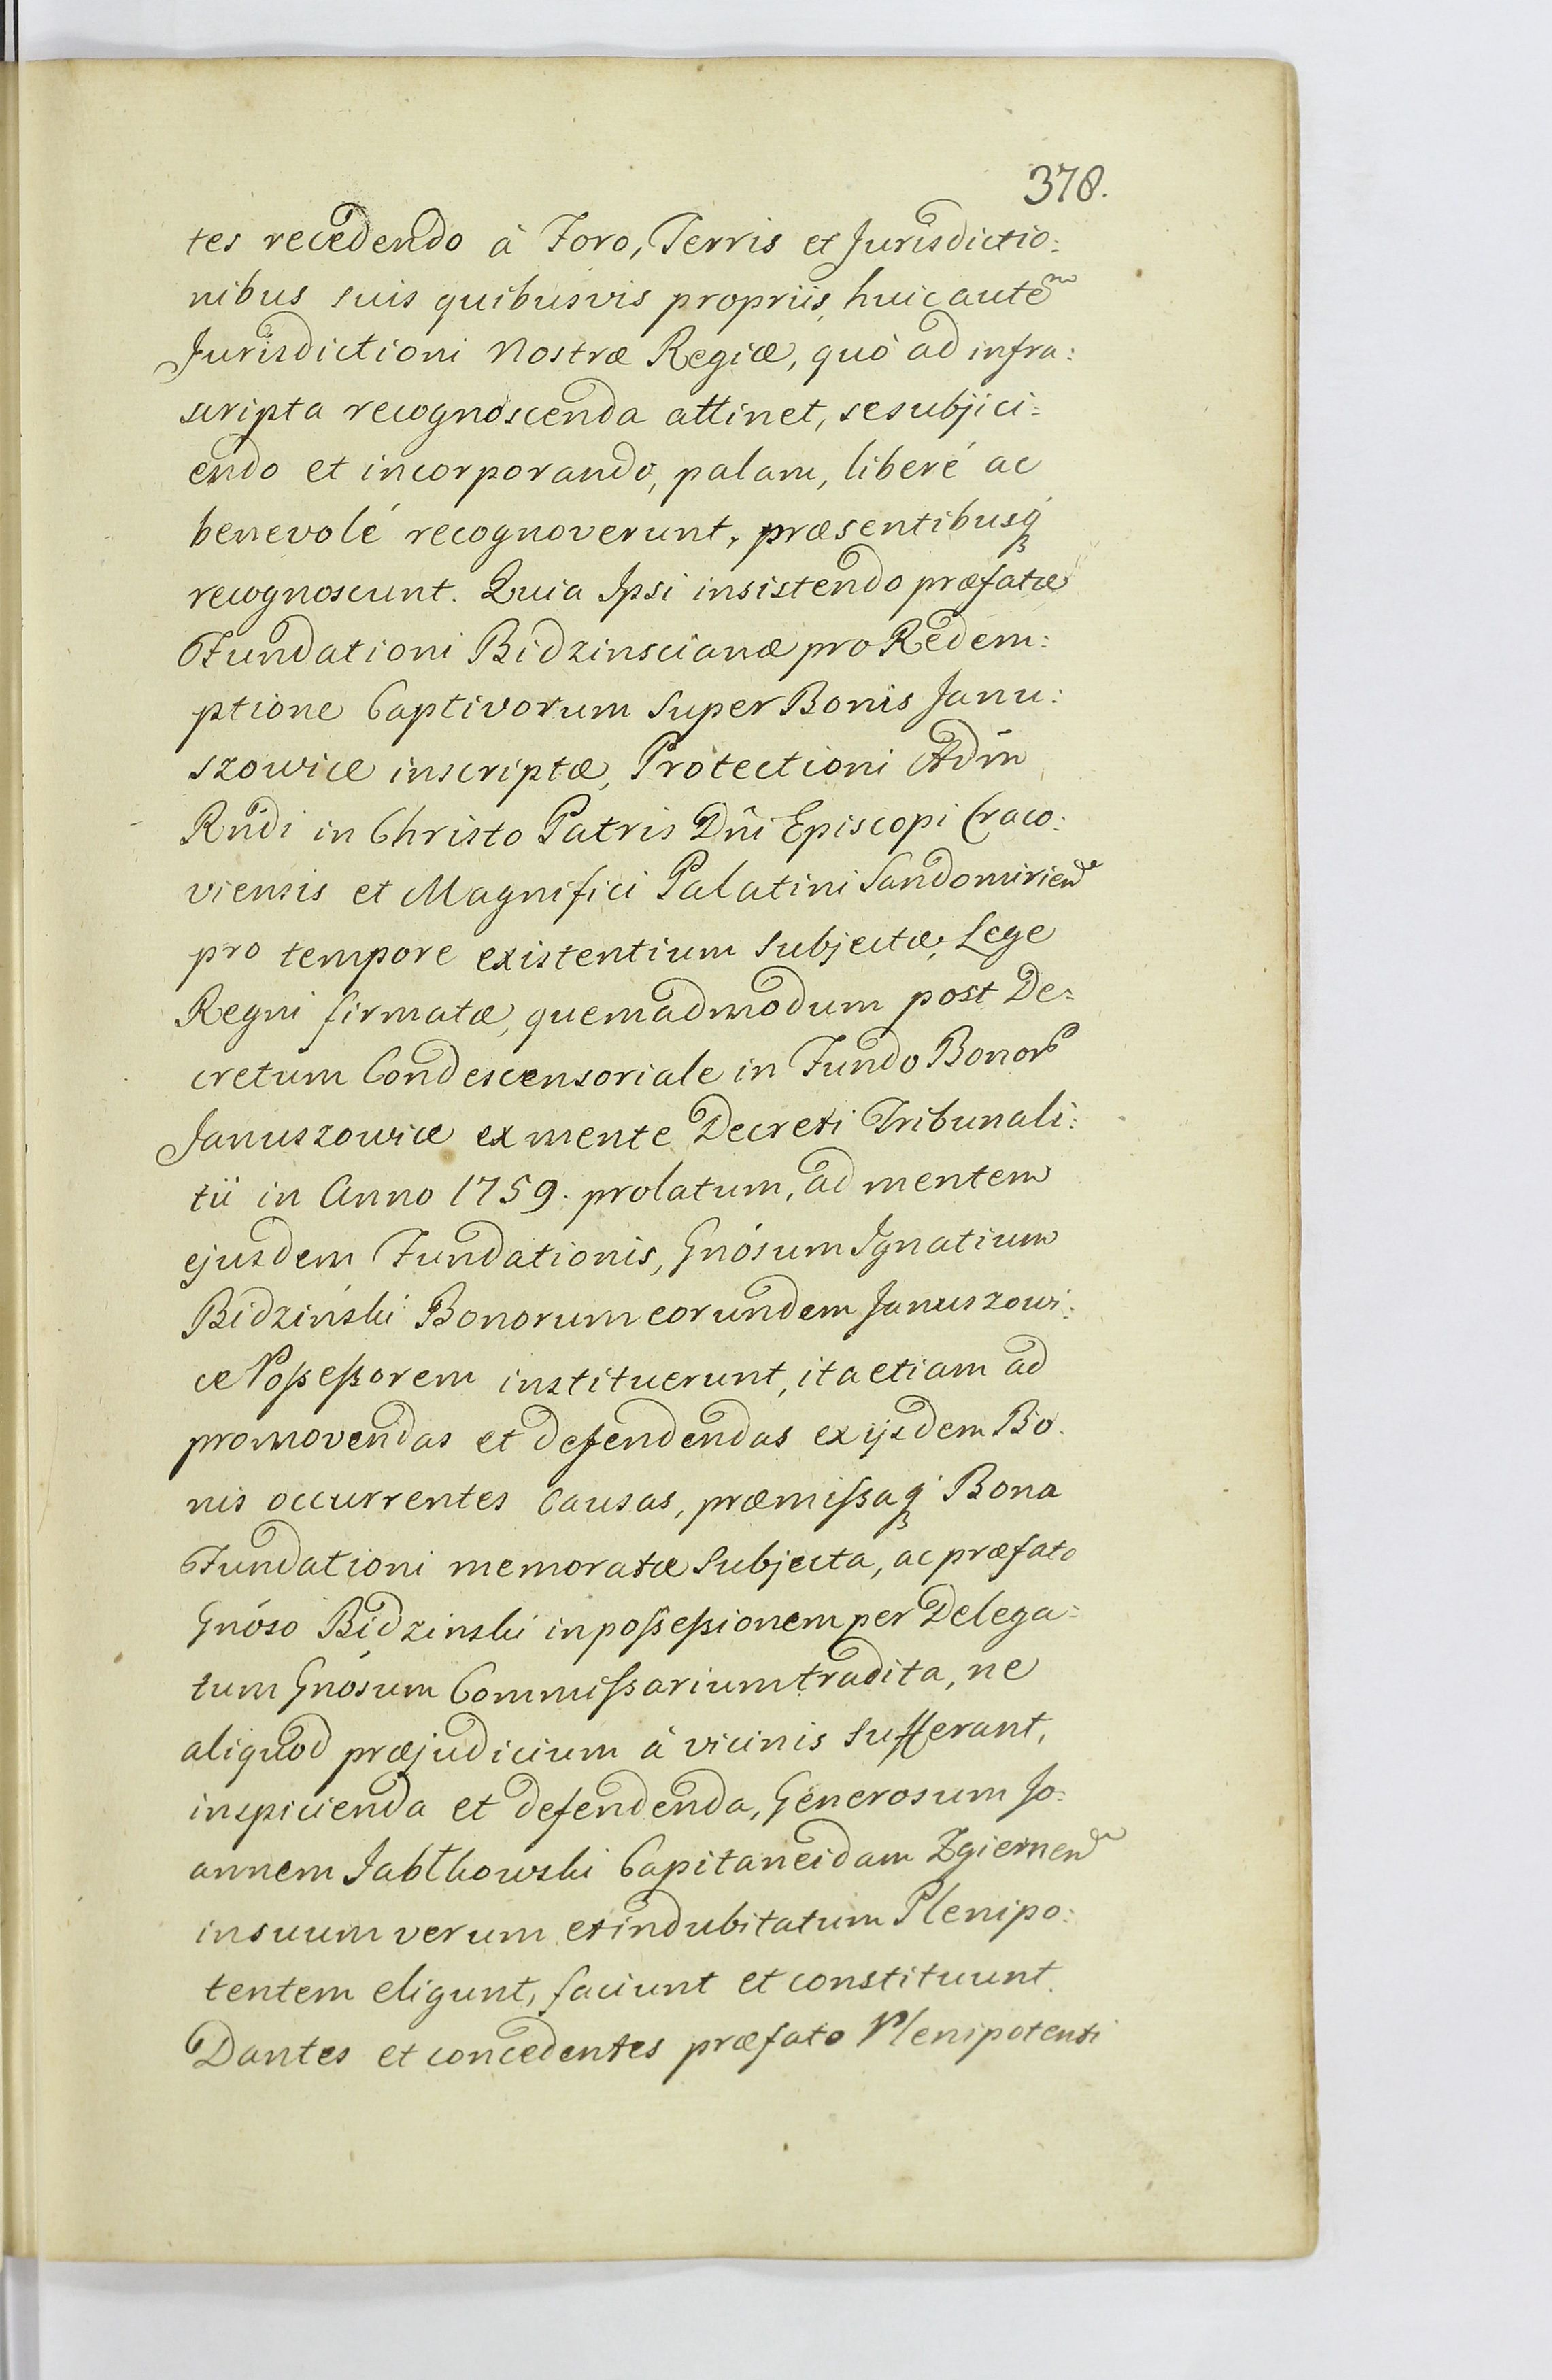 378.
tes recedendo à Foro, Terris et Jurisdictio:
nibus suis quibusvis propriis, huic autem
Jurisdictioni Nostræ Regiæ, quò ad infra:
scripta recognoscenda attinet, se subjici:
endo et incorporando, palam, liberé ac
benevolé recognoverunt, præsentibusq́
recognoscunt. Quia Ipsi insistendo præfatæ
Fundationi Bidzinscianæ pro Redem:
ptione Captivorum super Bonis Janu:
szowice inscriptæ, Protectioni Adm̃
Rñdi in Christo Patris Dñi Episcopi Craco:
viensis et Magnifici Palatini Sandomirien̄
pro tempore existentium subjectæ, Lege
Regni firmatæ, quemadmodum post De:
cretum Condescensoriale in Fundo Bonorꝝ
Januszowice ex mente Decreti Tribunali:
tii in Anno 1759. prolatum, ad mentem
ejusdem Fundationis, Gnósum Ignatium
Bidziński Bonorum eorundem Januszowi:
ce Possessorem instituerunt, ita etiam ad
promovendas et defendendas ex ijsdem Bo:
nis occurrentes Causas, præmissaq́ Bona
Fundationi memoratæ subjecta, ac præfato
Gnóso Bidzinski in possessionem per Delega:
tum Gnósum Commissarium tradita, ne
aliquod præjudicium à vicinis sufferant,
inspicienda et defendenda, Generosum Jo:
annem Jabłkowski Capitaneidam Zgiernen̄
in suum verum et indubitatum Plenipo:
tentem eligunt, faciunt et constituunt.
Dantes et concedentes præfato Plenipotenti